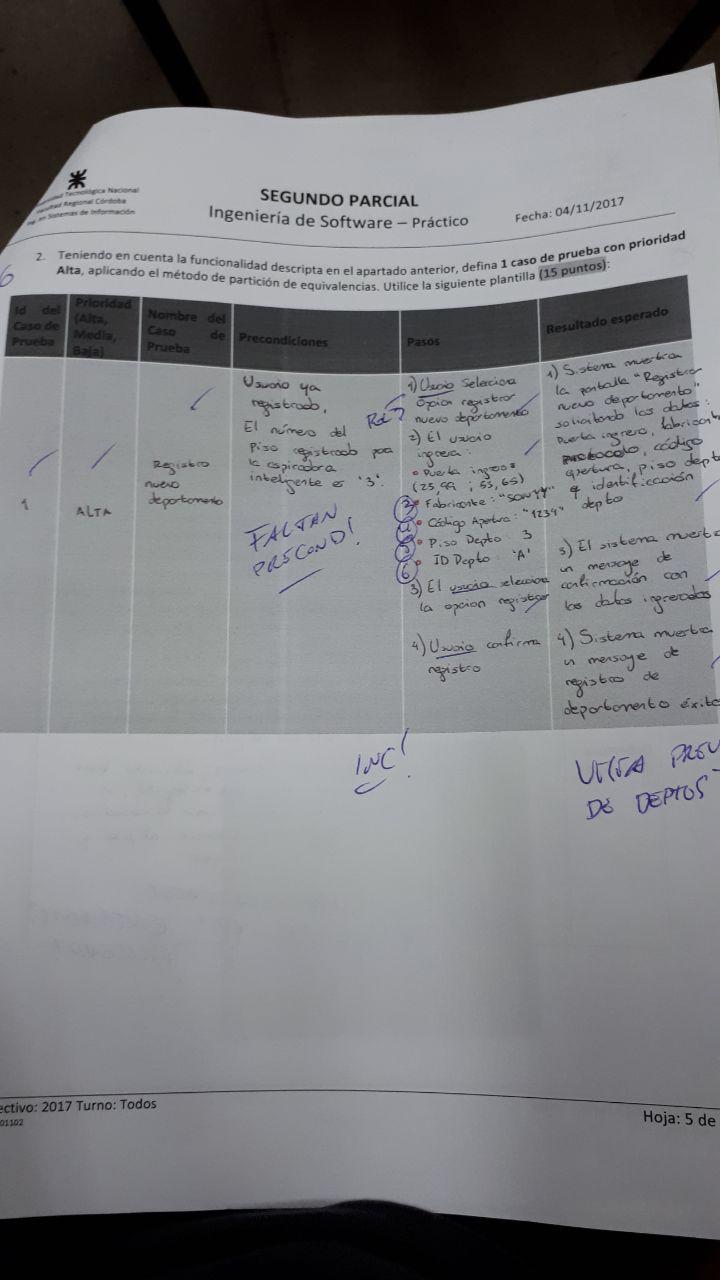 Tecnológica Nacional
Regional Córdoba
en Sistemas de Información
SEGUNDO PARCIAL
Ingeniería de Software – Práctico
Fecha: 04/11/2017
6
2. Teniendo en cuenta la funcionalidad descripta en el apartado anterior, defina 1 caso de prueba con prioridad
Alta, aplicando el método de partición de equivalencias. Utilice la siguiente plantilla (15 puntos):
Id del
Caso de
Prueba
Prioridad
(Alta,
Media,
Baja)
Nombre del
Caso de
Prueba
Precondiciones
Pasos
Resultado esperado
1
ALTA
Registro
nuevo
departamento
Usuario ya
registrado,
El número del
Piso registrado por
la aspiradora
inteligente es '3'.
FALTAN
PRECOND!
1) Usuario Selecciona
Opción registrar
nuevo departamento
2) El usuario
ingresa:
Puerta ingreso:
(25,99 ; 65,65)
3 Fabricante: "SONYY"
4 Código Apertura: "1234"
5 Piso Depto: 3
6 ID Depto: 'A'
3) El usuario selecciona
la opcion registrar
4) Usuario confirma
registro
1) Sistema muestra
la pantalla "Registrar
nuevo departamento"
solicitando los datos:
Puerta ingreso, fabricante
protocolo, código
apertura, piso depto
e identificación
depto
3) El sistema muestra
un mensaje de
confirmación con
los datos ingresados
4) Sistema muestra
un mensaje de
registro de
departamento éxito
INC!
DE DEPTOS
ectivo: 2017 Turno: Todos
01102
Hoja: 5 de